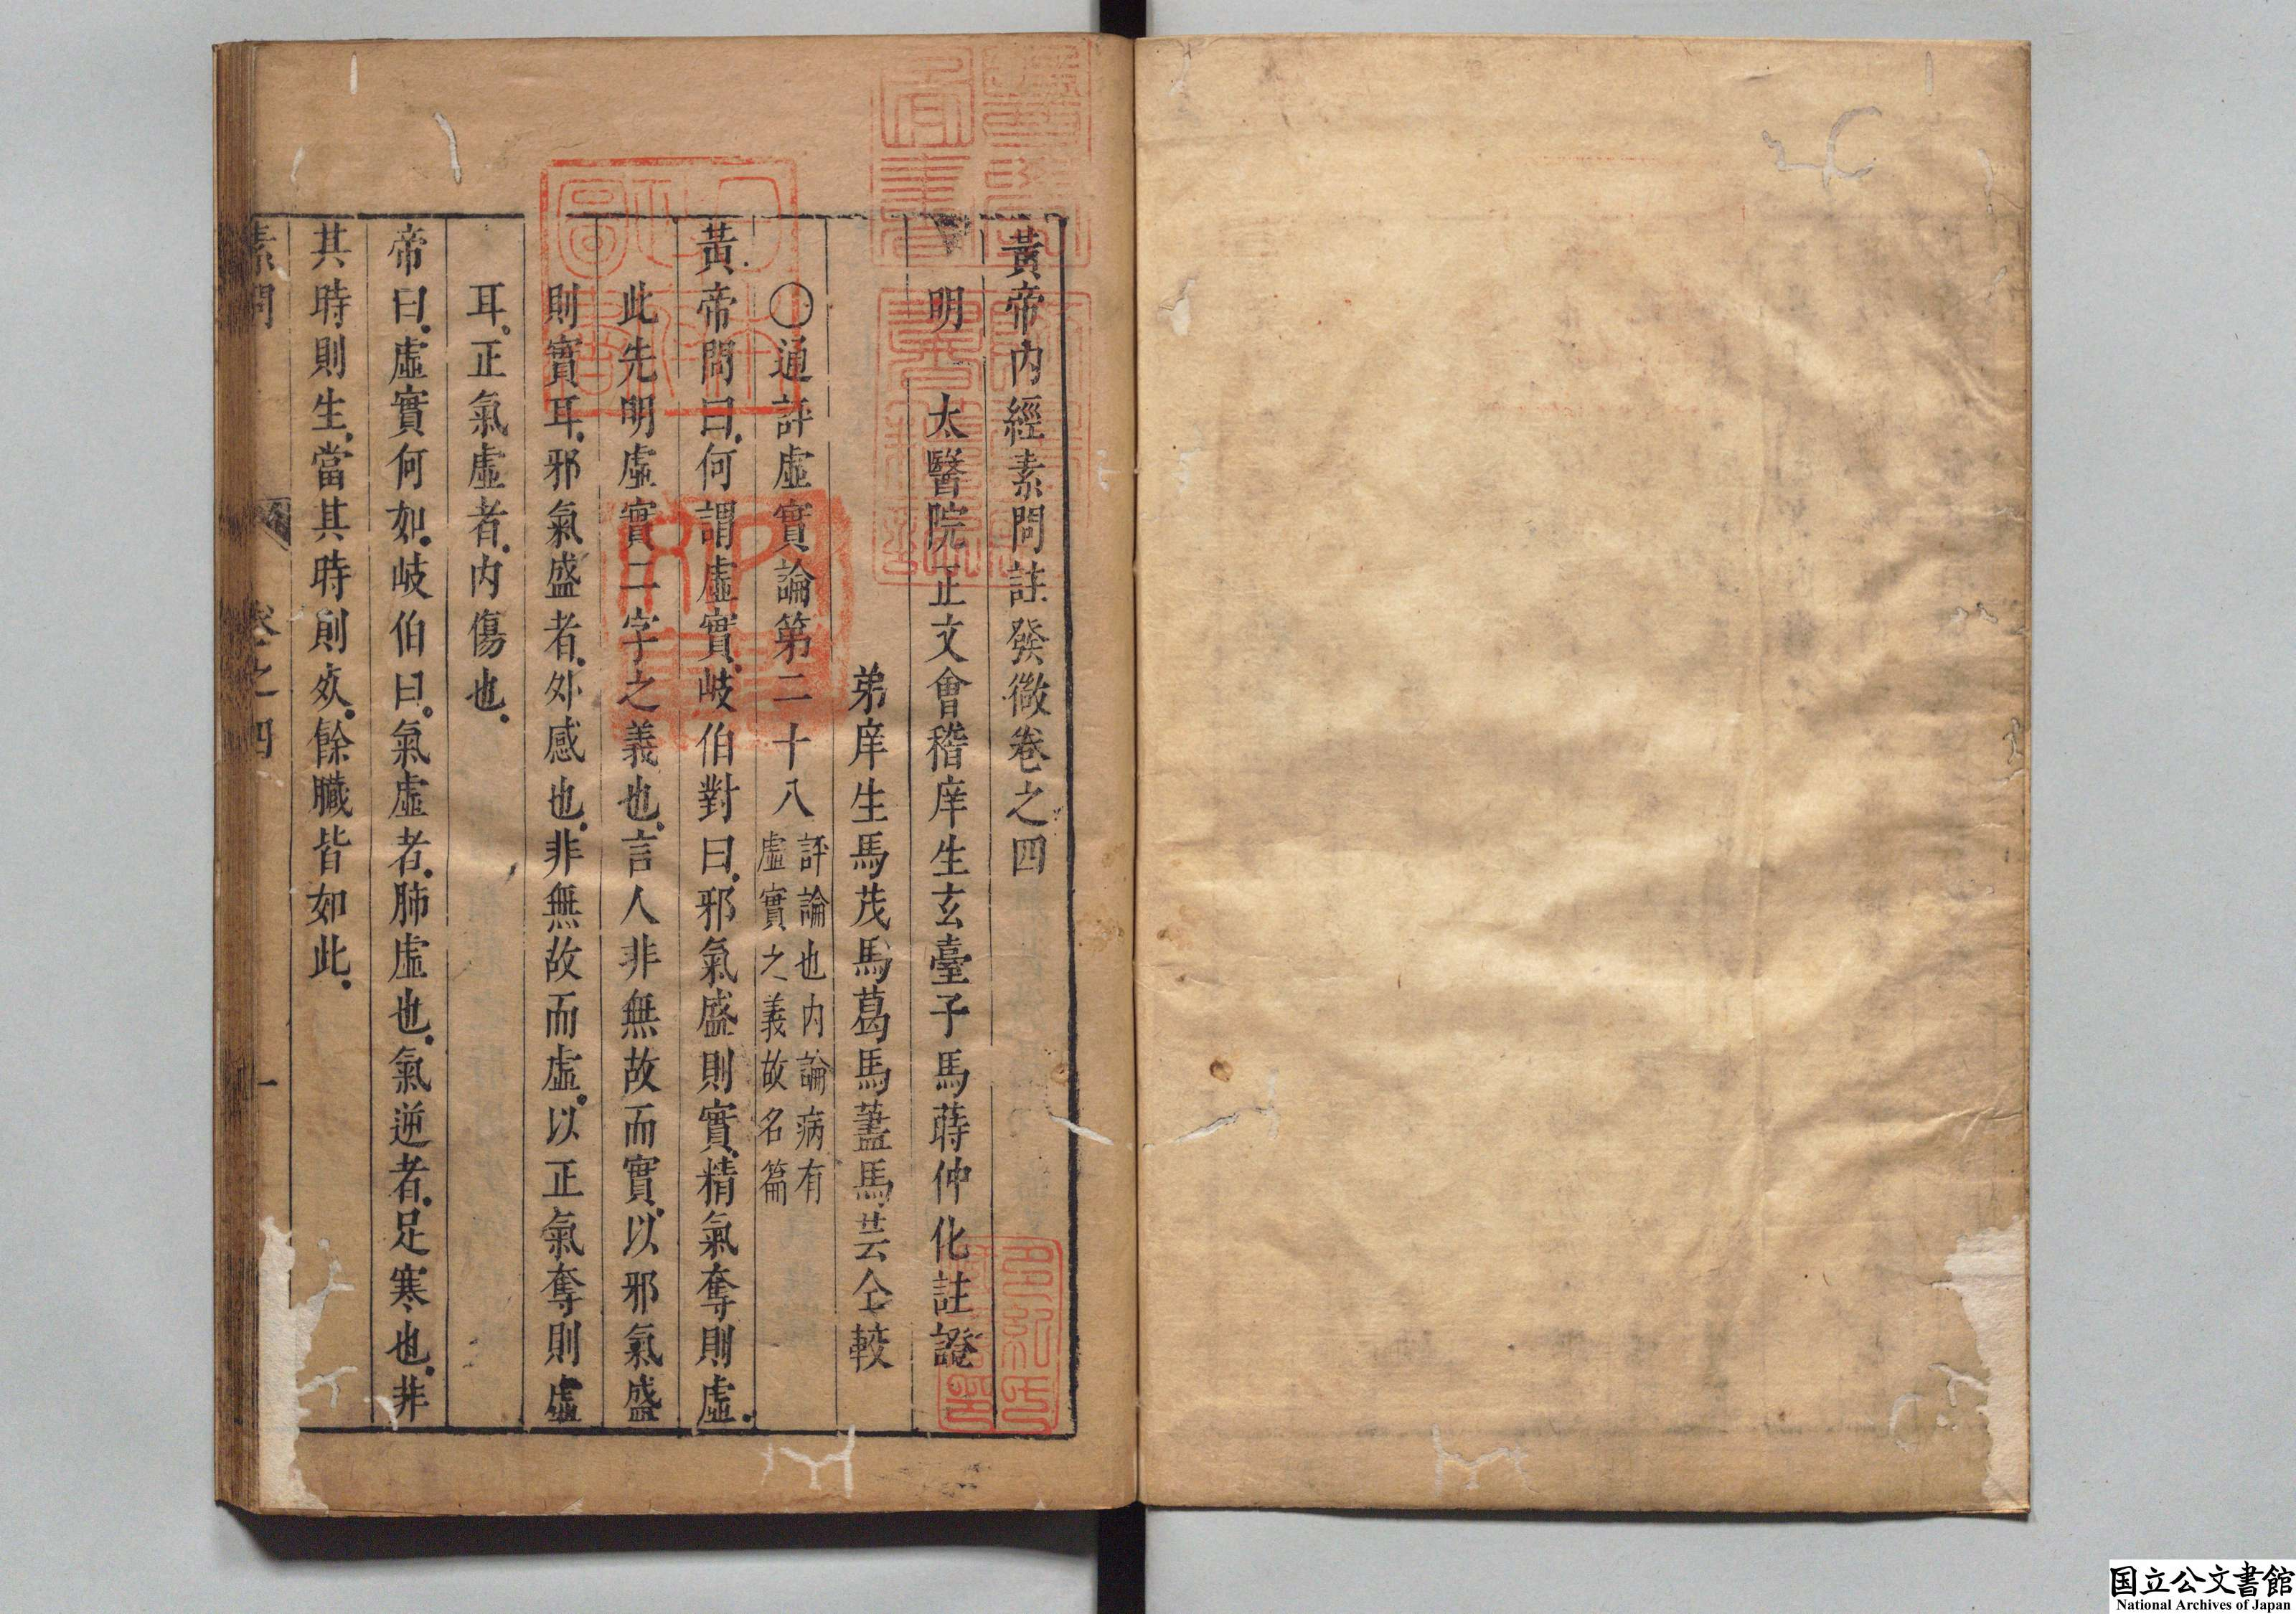 黃帝內經素問註證發微卷之四
明　太醫院正文會稽庠生玄臺子馬蒔仲化註證
弟庠生馬茂馬葛馬藎馬芸仝較
○通評虛實論第二十八
評論也内論病有
虛實之義故名篇
黃帝問曰.何謂虛實.岐伯對曰.邪氣盛則實.精氣奪則虛.
此先明虛實二字之義也.言人非無故而實.以邪氣盛
則實耳.邪氣盛者.外感也.非無故而虛.以正氣奪則虛
耳.正氣虛者.内傷也.
帝曰.虛實何如.岐伯曰.氣虛者.肺虛也.氣逆者.足寒也.非
其時則生.當其時則死.餘臟皆如此.
素問
卷之四
一
国立公文書館
National Archives of Japan